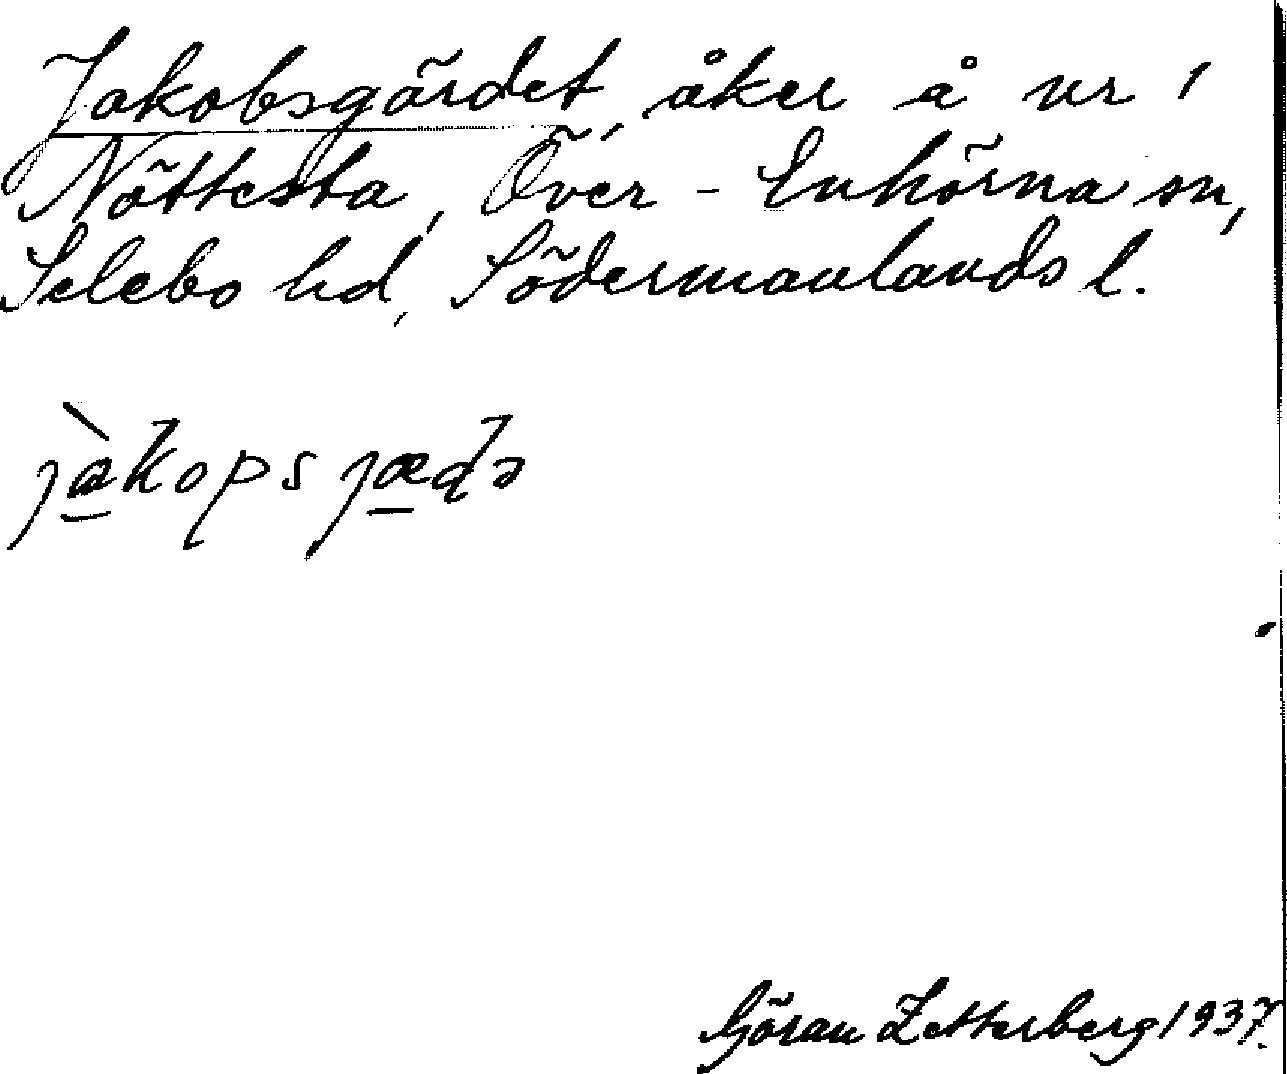 Jakobsgärdet, åker å nr 1
Nöttesta, Över-Enhörna sn,
Selebo hd, Södermanlands l.
jàkopsjædə
Göran Zetterberg 1937.